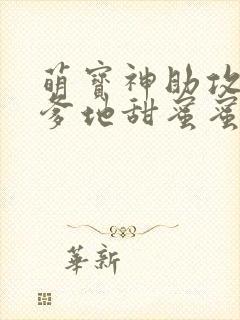 萌寳神助攻
爹地甜蜜蜜
華新